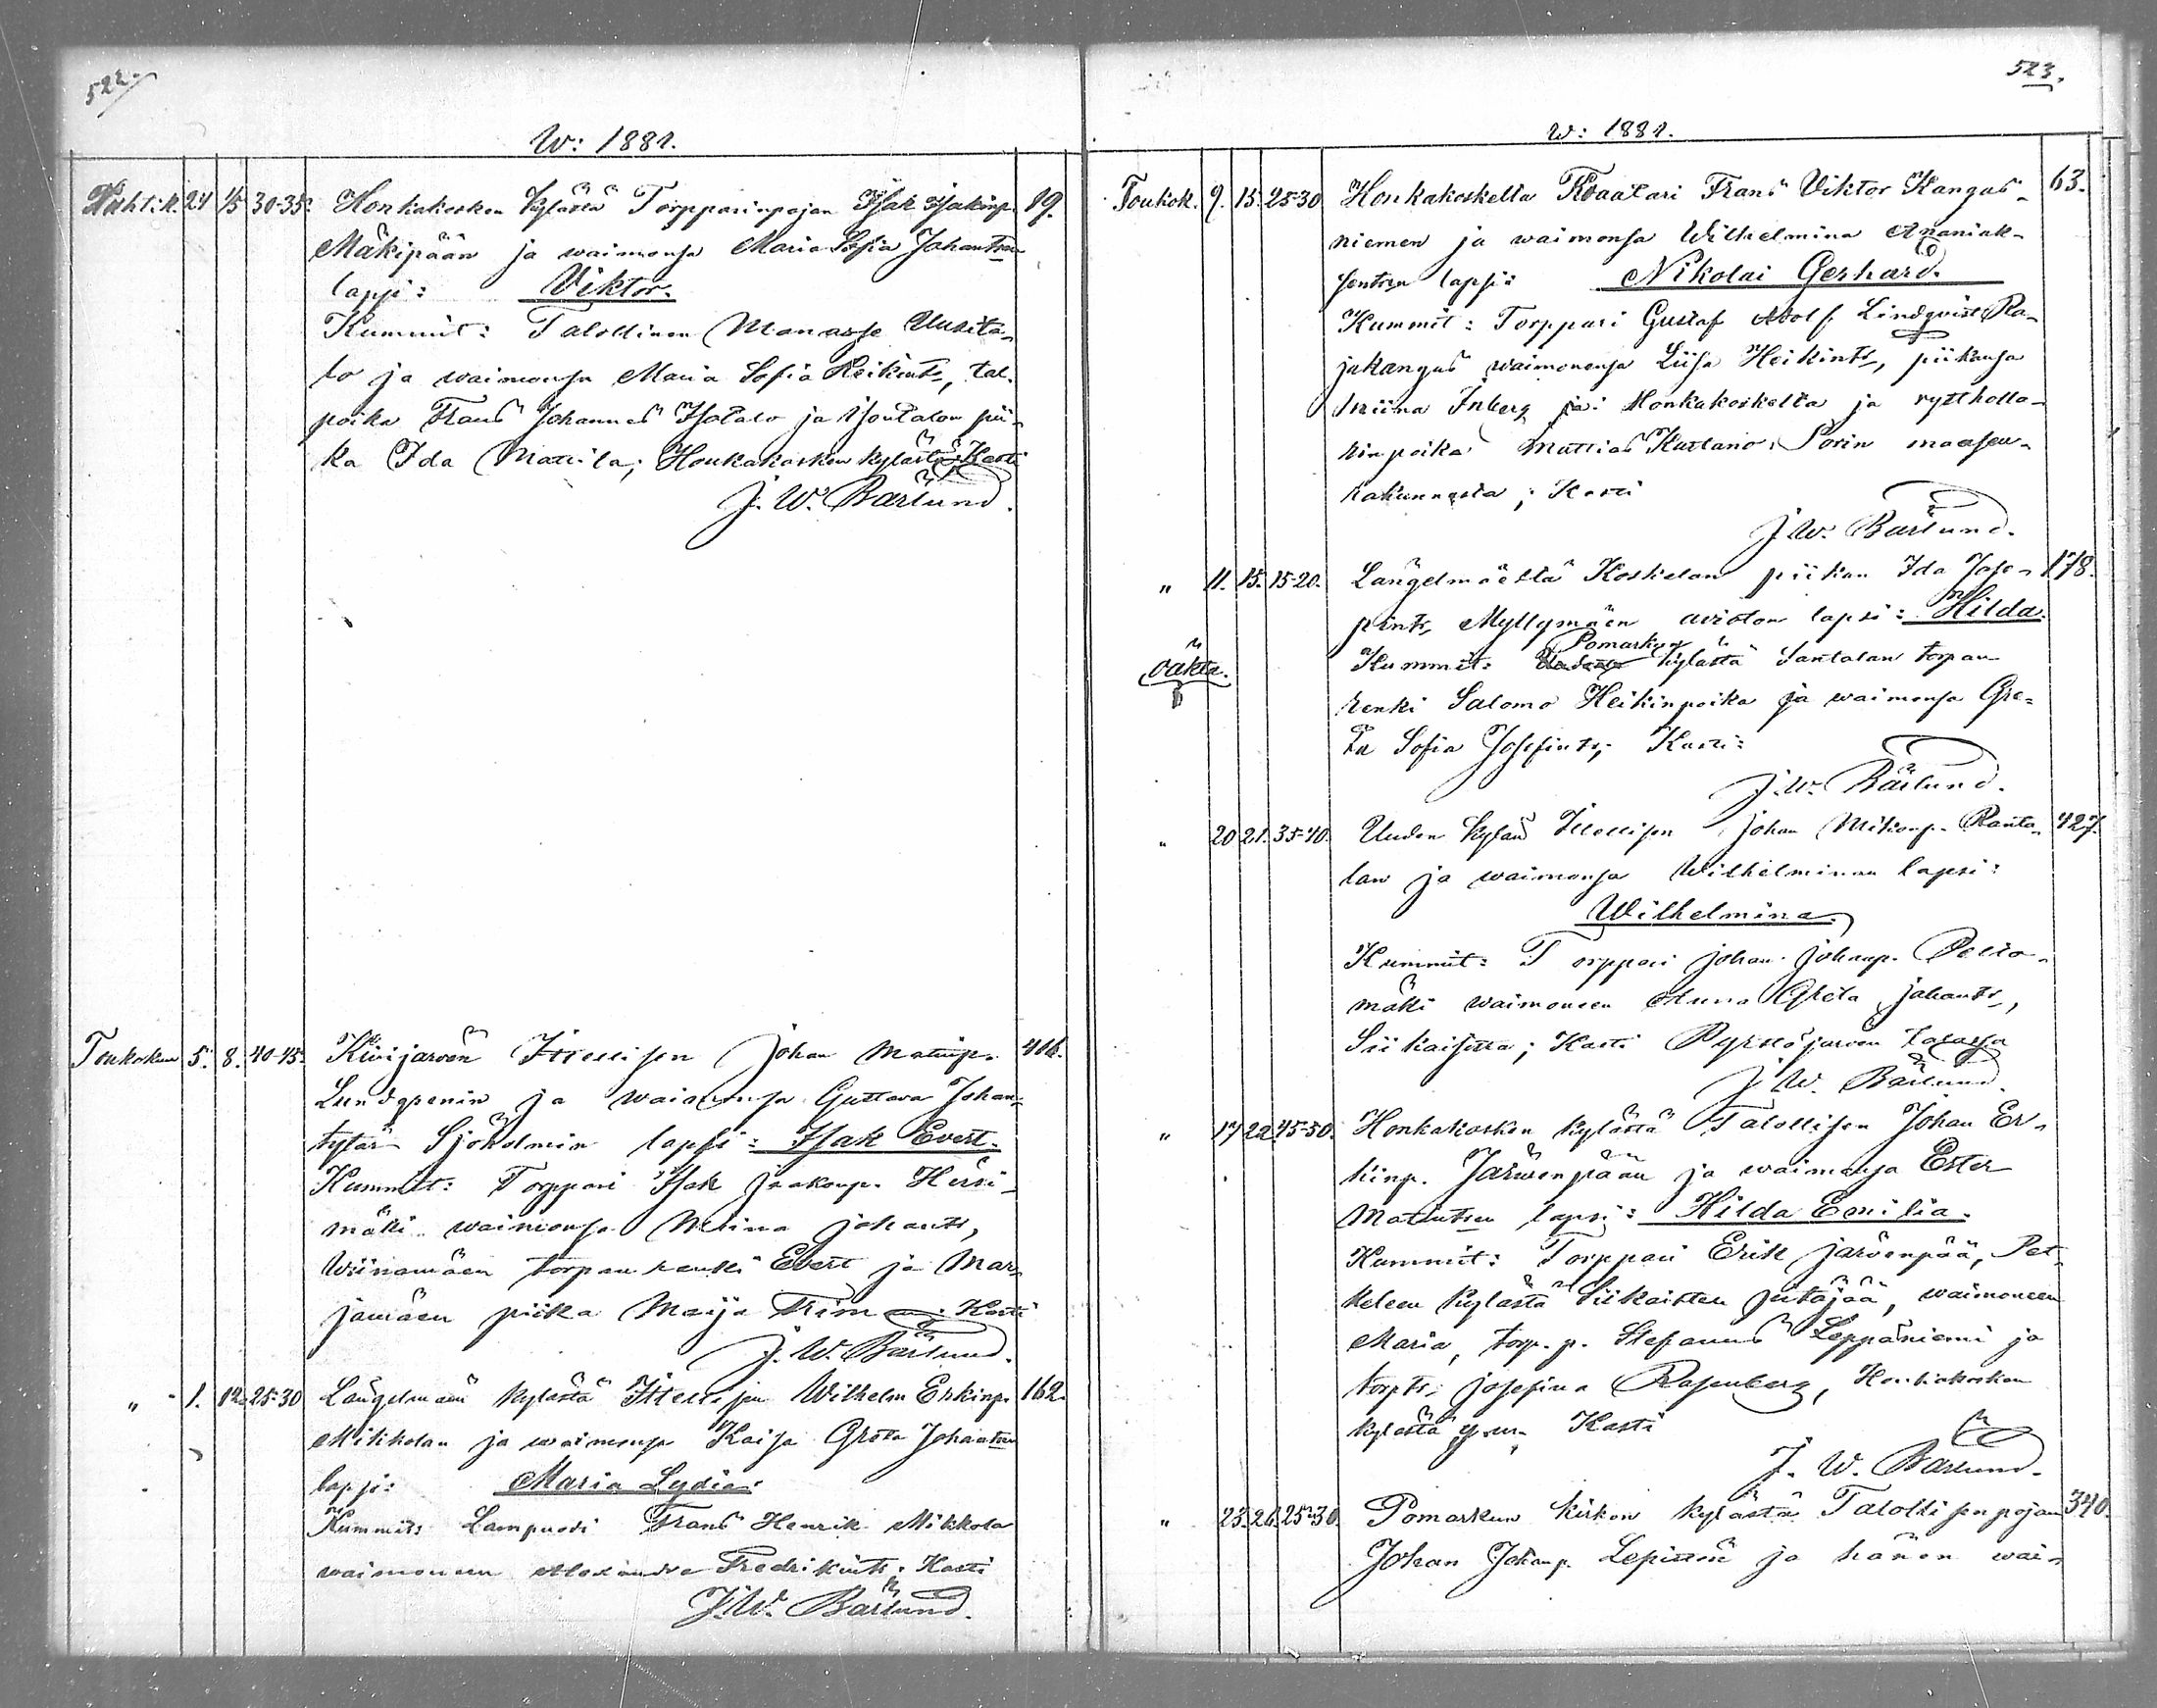 522.
W: 1881.
Huht:k. 24 1/5 30-35. Honkakosken kylästä Torpparinpojan Isak Isakinp. 19.
Mäkipään ja waimonsa Maria Sofia Johantren
lapsi: Viktor.
Kummit: Talollinen Manasse Uusita-
lo ja waimonsa Maria Sofia Heikints, tal.
poika Frans Johannes Isotalo ja Isontalon pii-
ka Ida Matila; Honkakosken kylästä; Kasti
J. W. Bärlund.
Toukokuu 5. 8. 40-45. Kivijärven Itsellisen Johan Matinp.
Lundgrenin ja waimonsa Gustava Johan-
tytär Sjöholmin lapsi: Isak Evert.
Kummit: Torppari Isak Jaakonp. Hirsi-
mäki waimonsa Miina Johants,
Wiinamäen torpan renki Evert ja Mar-
jamäen piika Maija ; Kasti
J. W. Bärlund.
" 1. 12. 25-30 Längelmäen kylästä Itsellisen Wilhelm Erkinp. 162.
Mikkolan ja waimonsa Kaisa Greta Johantren
lapsi: Maria Lydia.
Kummit: Lampuodi Frans Henrik Mikkola
waimoneen Alexandra Fredrikints; Kasti
J. W. Bärlund.
523.
W: 1881.
Toukok. 9. 15. 25-30 Honkakoskelta Räätäri Frans Viktor Kangas- 63.
niemen ja waimonsa Wilhelmina Ananiak-
sentren lapsi: Nikolai Gerhard.
Kummit: Torppari Gustaf Adolf Lindqvist Ra-
jakangas waimonensa Liisa Heikints, piikansa
Inberg Honkakoskelta ja rystholla-
rinpoika Mattias Porin maaseu-
rakunnasta; Kasti
J. W. Bärlund.
" 11. 15. 15-20. Längelmäeltä Koskelan piikan Ida Jose- 178.
pints, Myllymäen avioton lapsi: Hilda.
oäkta.
Kummit: Pomarkun kylästä Santalan torpan
renki Salomo Heikinpoika ja waimonsa Gre-
ta Sofia Josefints; Kasti:
J. W. Bärlund.
" 20 21. 35-40. Uuden kylän Itsellisen Johan Mikonp. Ranta- 427.
lan ja waimonsa Wilhelminan lapsi:
Wilhelmina.
Kummit: Torppari Johan Johanp. Pelto-
mäki waimoneen Anna Greta Johants,
Siikaisista; Kasti talossa
J. W. Bärlund.
" 17 22. 45-50. Honkakosken kylästä Talollisen Johan Er-
kinp. Järwenpään ja waimonsa Ester
Matintren lapsi: Hilda Emilia.
Kummit: Torppari Erik Järvenpää, Pet-
keleen kylästä Siikaisten pitäjää, waimoneen
Maria, torp. p. Stefanus Leppäniemi ja
torpts. Josefina Rosenberg, Honkakosken
kylästä Kasti
J. W. Bärlund.
" 25. 26. 25-30. Pomarkun kirkon kylästä Talollisenpojan 340.
Johan Johanp. ja hänen wai-